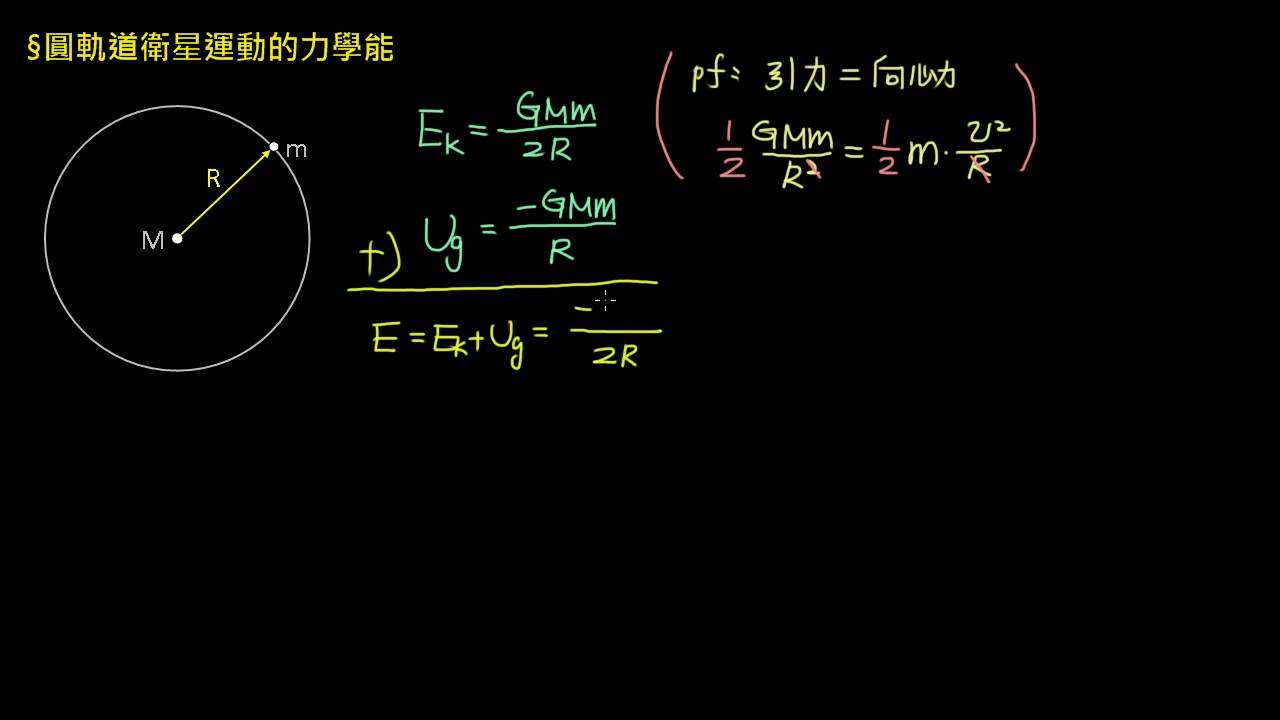 §圓軌道衛星運動的力學能
m
R
M
E_k = GMm / 2R
+) U_g = -GMm / R
E = E_k + U_g = - / 2R
( pf: 引力 = 向心力
1/2 GMm/R² = 1/2 m · v²/R )